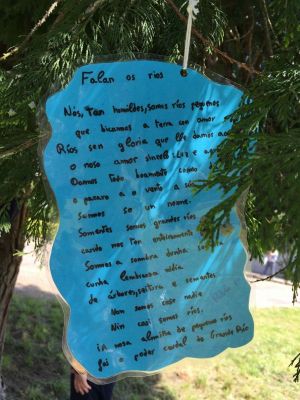 Falan os ríos
Nós, tan humildes, somos ríos pequenos
que bicamos a terra con amor
Ríos sen gloria que lle damos aos
o noso amor sinxelo: luz e
Damos todo hoamente como
o paxaro a o vento a súa
Somos so un nome.
Somentes somos grandes ríos
cando nos ten enteiramente
Somos a sombra dunha
cunha lembranza nidia
de árbores, seitura e sementes
Non somos case nadie
Nin casi somos ríos.
¡A nosa almiña de pequenos ríos
fai o poder cordal do Grande Río